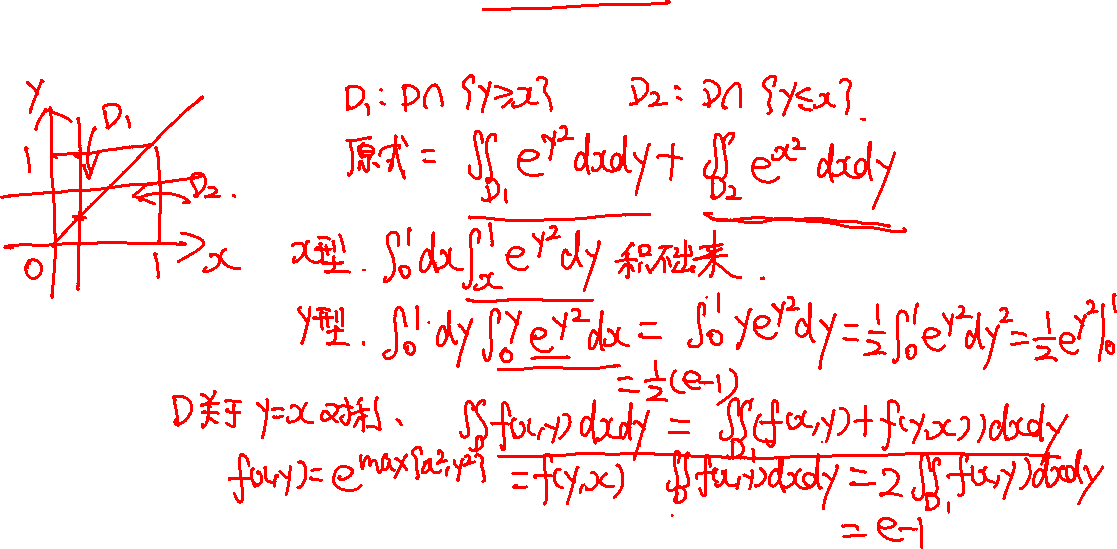 D₁: D∩{y≥x}  D₂: D∩{y≤x}.
原式 = ∬_{D₁} e^{y²} dxdy + ∬_{D₂} e^{x²} dxdy
x型. ∫₀¹ dx ∫ₓ¹ e^{y²} dy 积不出来.
y型. ∫₀¹ dy ∫₀^y e^{y²} dx = ∫₀¹ y e^{y²} dy = ½ ∫₀¹ e^{y²} dy² = ½ e^{y²} |₀¹
= ½ (e-1)
D 关于 y=x 对称、 ∬_D f(x,y) dxdy = ∬_{D₁} (f(x,y) + f(y,x)) dxdy
f(x,y) = e^{max{x²,y²}} = f(y,x)  ∬_D f(x,y) dxdy = 2 ∬_{D₁} f(x,y) dxdy
= e-1
y
D₁
1
D₂.
0
1
x